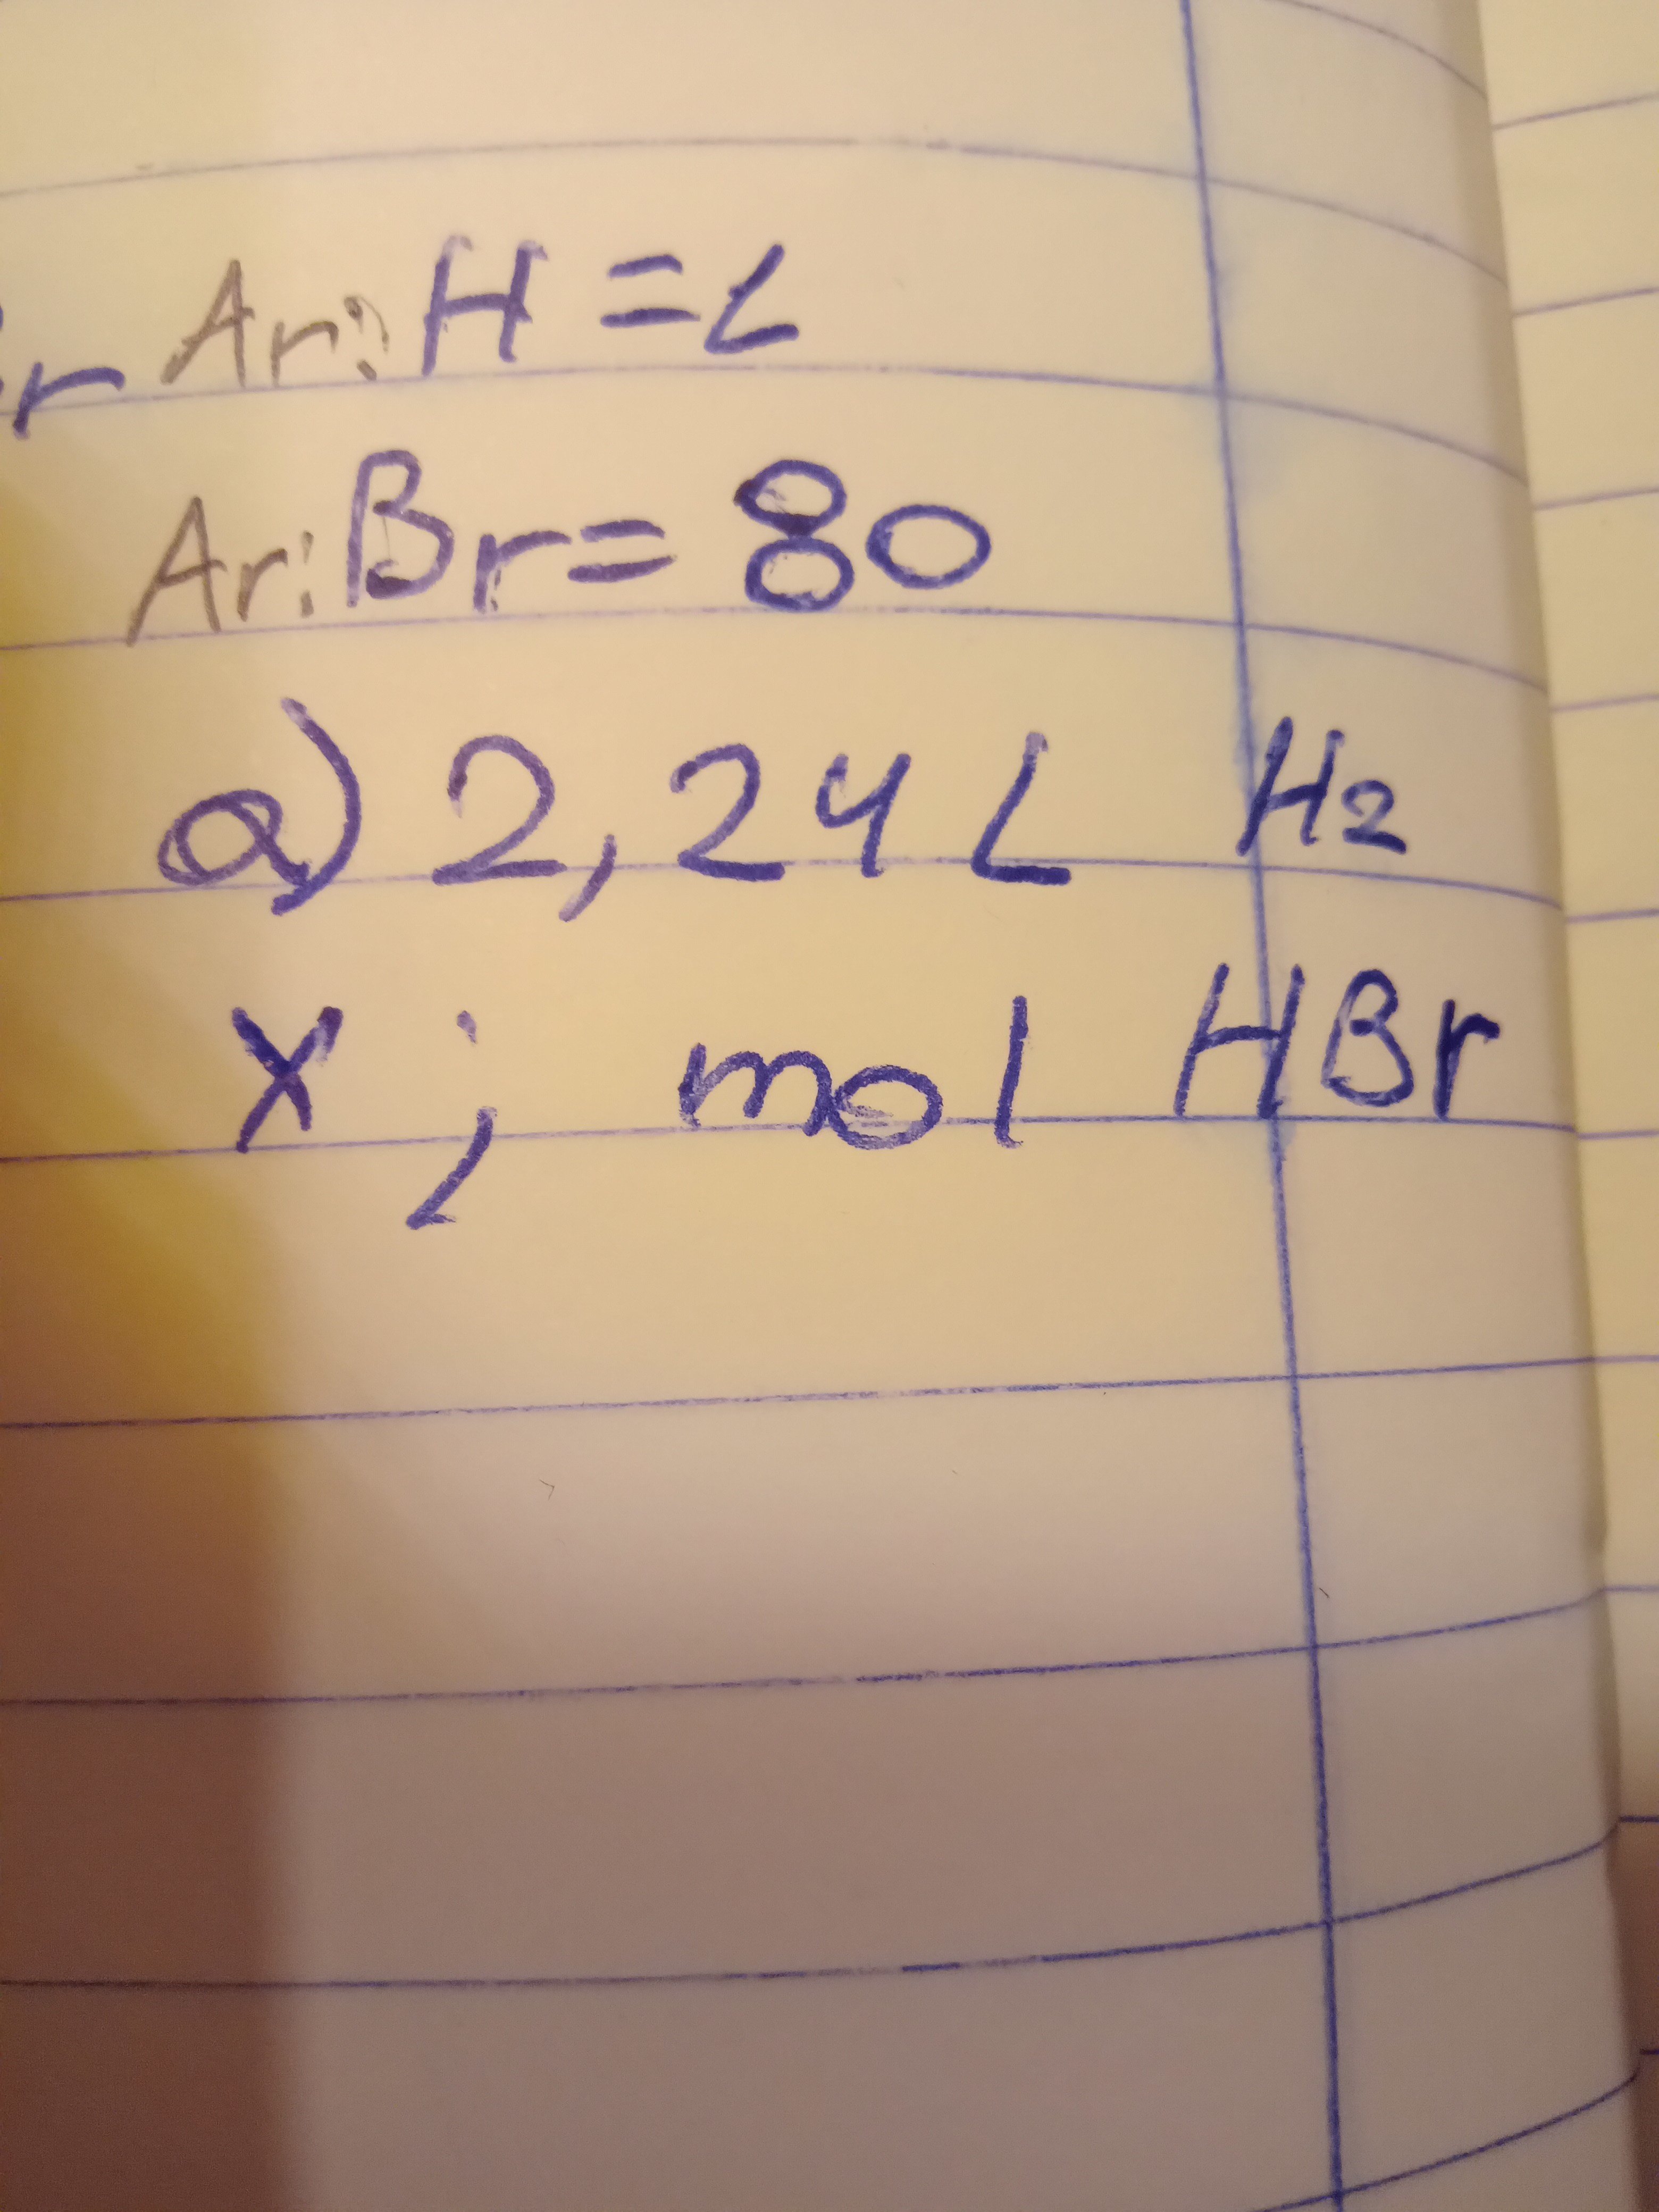 r Ar: H = L
Ar: Br = 80
a) 2,24 L H2
X ; mol HBr